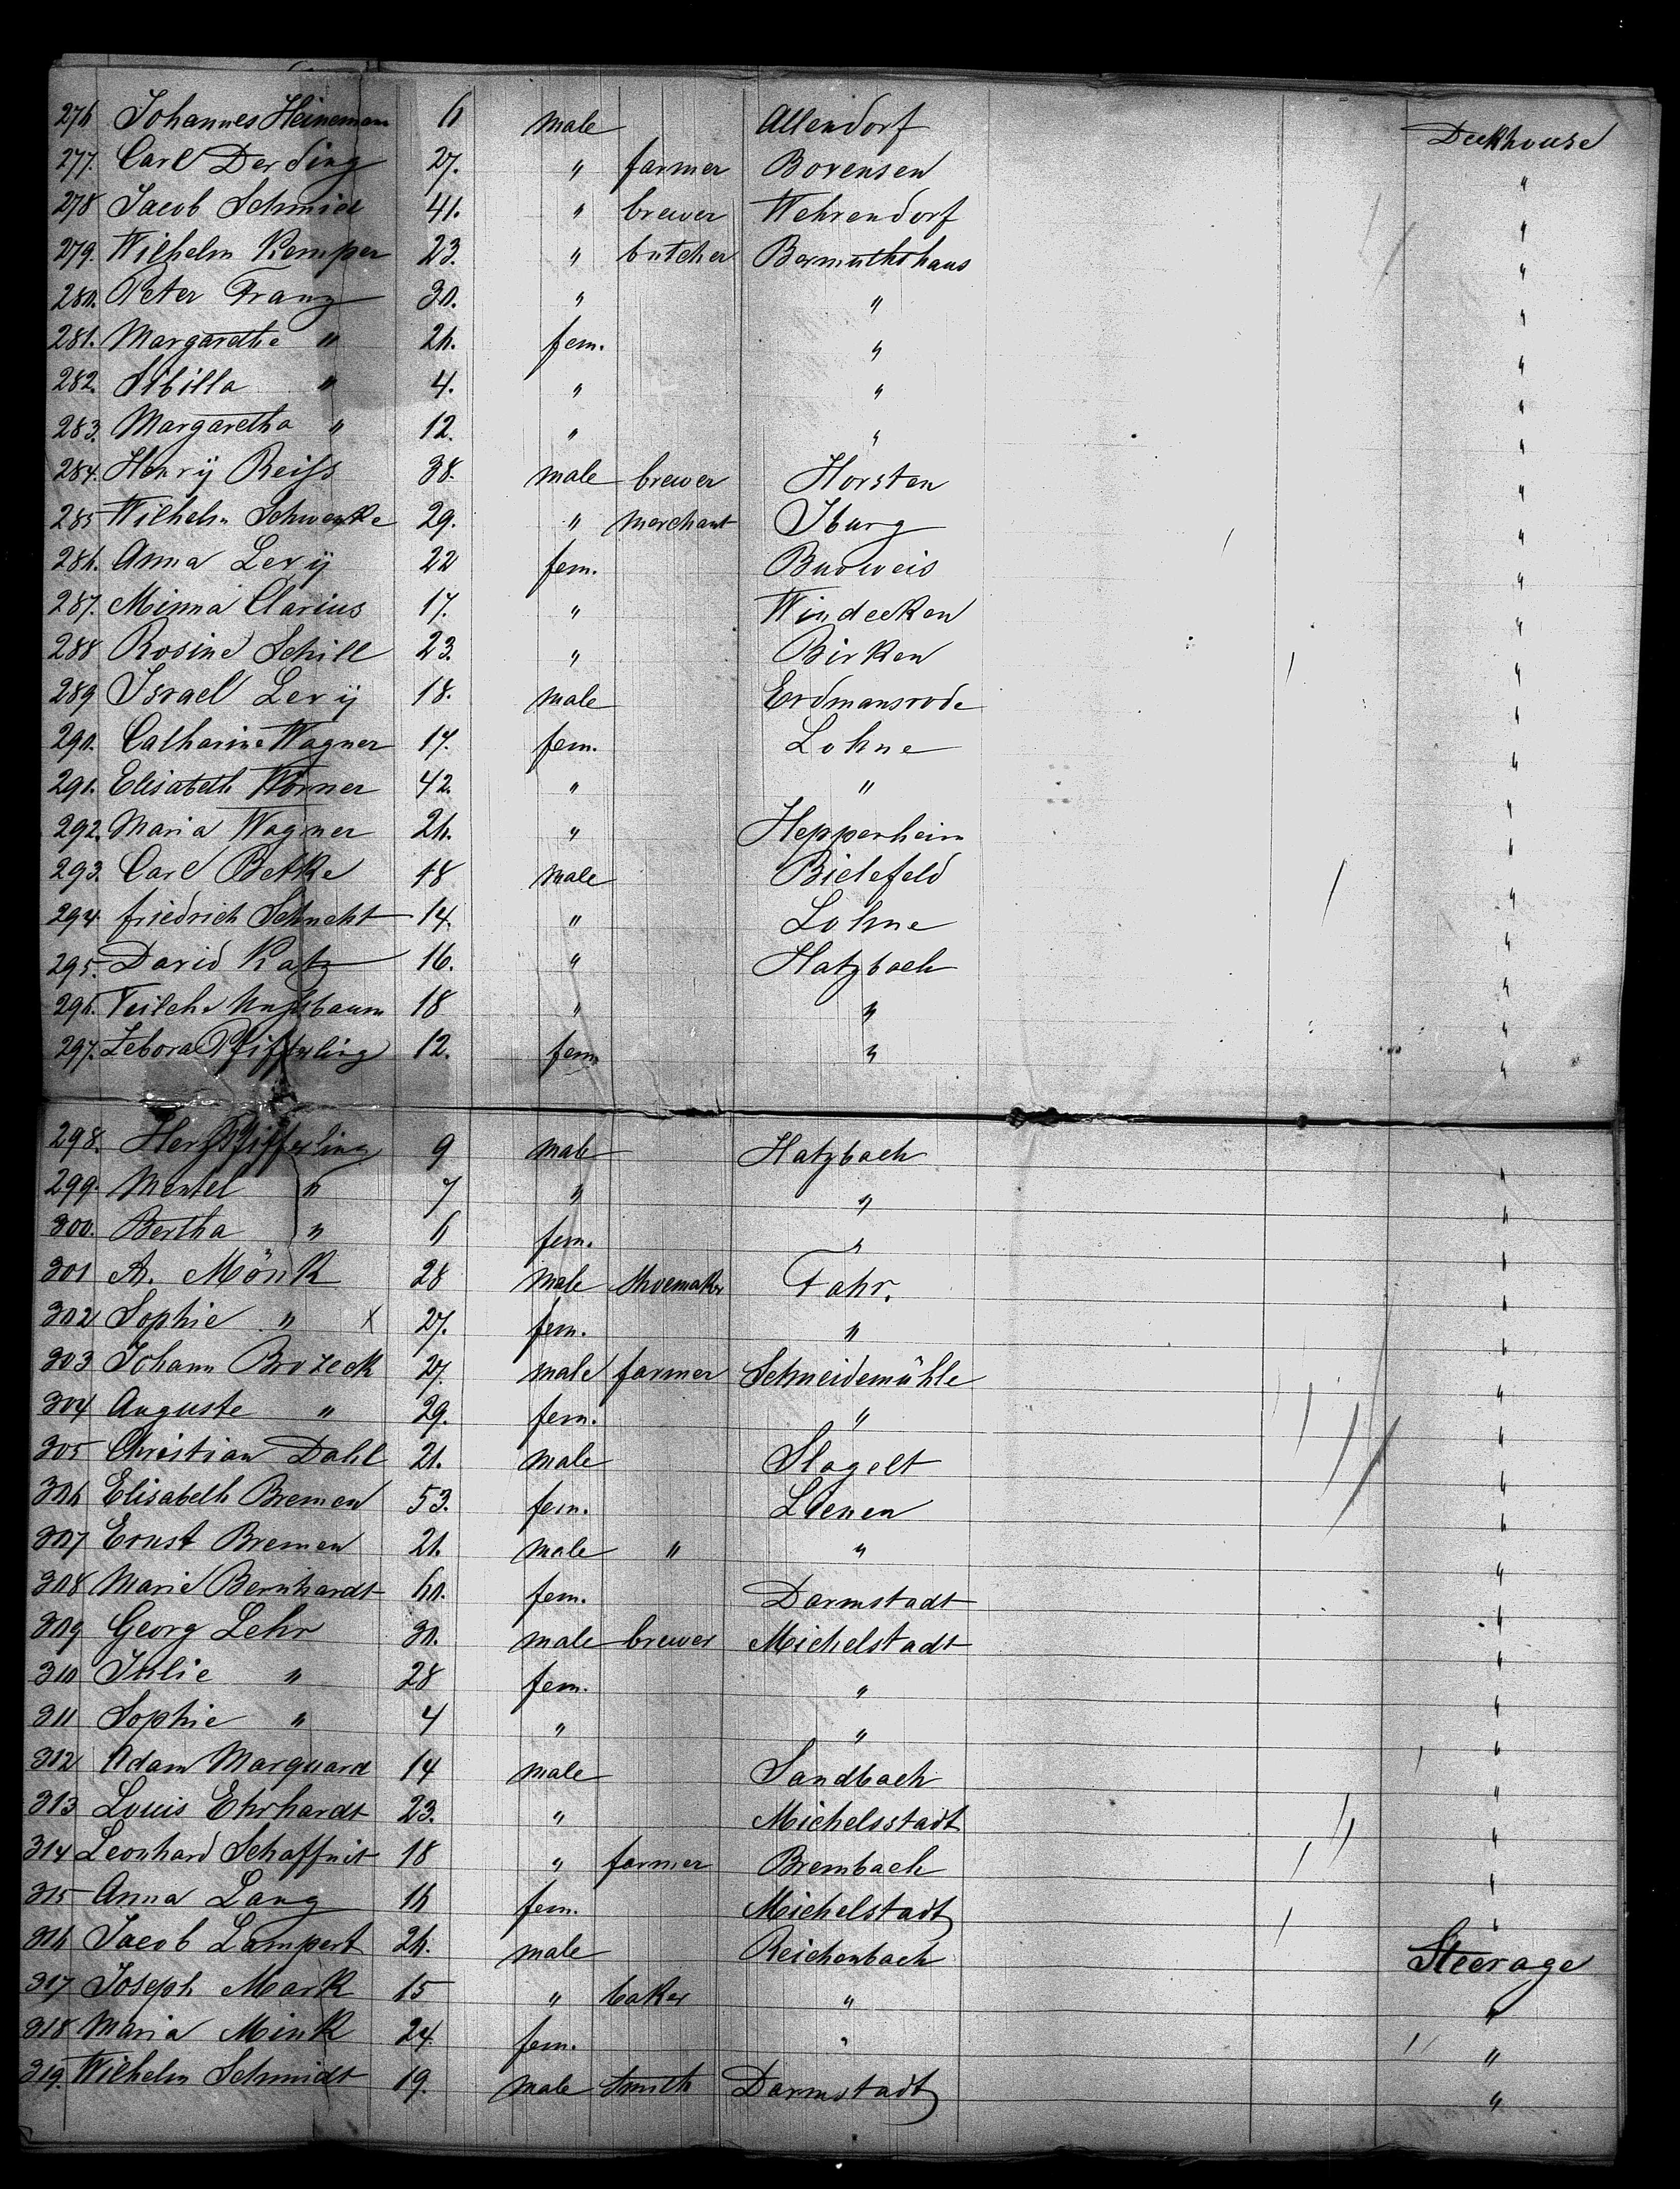 276 Johannes Heineman 6 male Allendorf Deckhouse
277. Carl Derding 27. " farmer Bovensen "
278 Jacob Schmid 41. " brewer Wehrendorf "
279. Wilhelm Kemper 23. " butcher Bermuthshaus "
280. Peter Franz 30. " " "
281. Margarethe " 26. fem. " "
282. Sibilla " 4. " " "
283. Margaretha " 12. " " "
284. Henrÿ Reiss 38. male brewer Horsten "
285 Wilhelm Schwenke 29. " merchant Iburg "
286. Anna Levÿ 22 fem. Budweis "
287. Minna Clarius 17. " Windecken "
288 Rosine Schill 23. " Birken "
289 Israel Levÿ 18. male Erdmansrode "
290. Catharine Wagner 17. fem. Lohne "
291. Elisabeth Körner 42. " " "
292. Maria Wagner 26. " Hepperheim "
293. Carl Betke 18 male Bielefeld "
294. friedrich Schucht 14. " Lohne "
295. David Katz 16. " Hatzbach "
296. Teilche Nussbaum 18 " " "
297. Zebora Pfifferling 12. fem " "
298. Herz Pfifferling 9 male Hatzbach "
299. Mentel " 7 " " "
300. Bertha " 6 fem. " "
301 A. Mönk 28 male Shoemaker Fahr. "
302 Sophie " X 27. fem. " "
303 Johann Brozeck 27. male farmer Schneidemühle "
304 Auguste " 29. fem. " "
305 Christian Dahl 21. male Slagelt "
306 Elisabeth Bremen 53. fem. "
307 Ernst Bremen 21. male " " "
308 Marie Bernhardt 60. fem. Darmstadt "
309 Georg Lehr 30. male brewer Michelstadt "
310 Julie " 28 fem. " "
311 Sophie " 4 " " "
312 Adam Marquard 14 male Sandbach "
313 Louis Ehrhardt 23. " Michelsstadt "
314 Leonhard Schaffnit 18 " farmer Brembach "
315 Anna Lang 16 fem. Michelstadt "
316 Jacob Lampert 26. male Reichenbach Steerage
317 Joseph Mark 15 " baker " "
318 Maria Mink 24. fem. " "
319. Wilhelm Schmidt 19. male Smith Darmstadt "